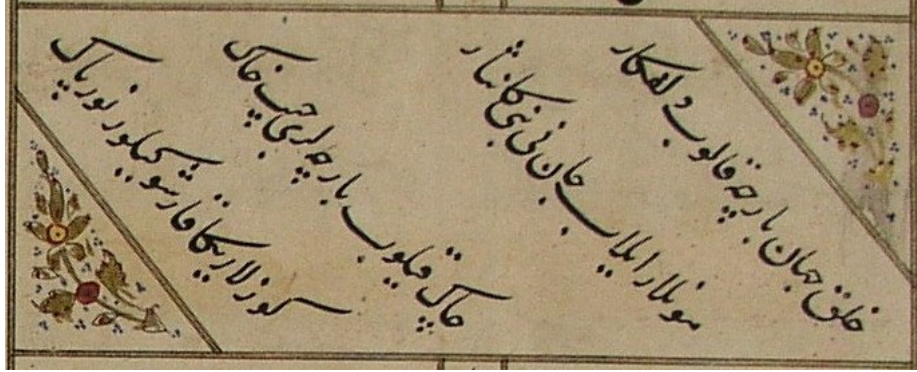 خلق جهان بارچه قالوب دلفکار
مونلار ایلاب جان نی نبی کا نثار
چاک قیلوب بارچه لری جیب چاک
کوزلاریکا قارشو کیلور نور پاک